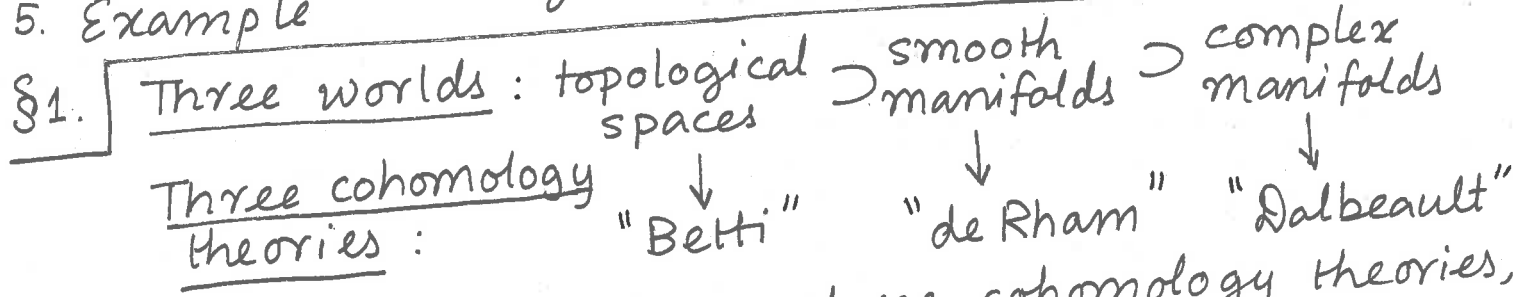 5. Example
§1. Three worlds : topological spaces ⊃ smooth manifolds ⊃ complex manifolds
Three cohomology theories : ↓ "Betti" ↓ "de Rham" ↓ "Dalbeault"
cohomology theories,